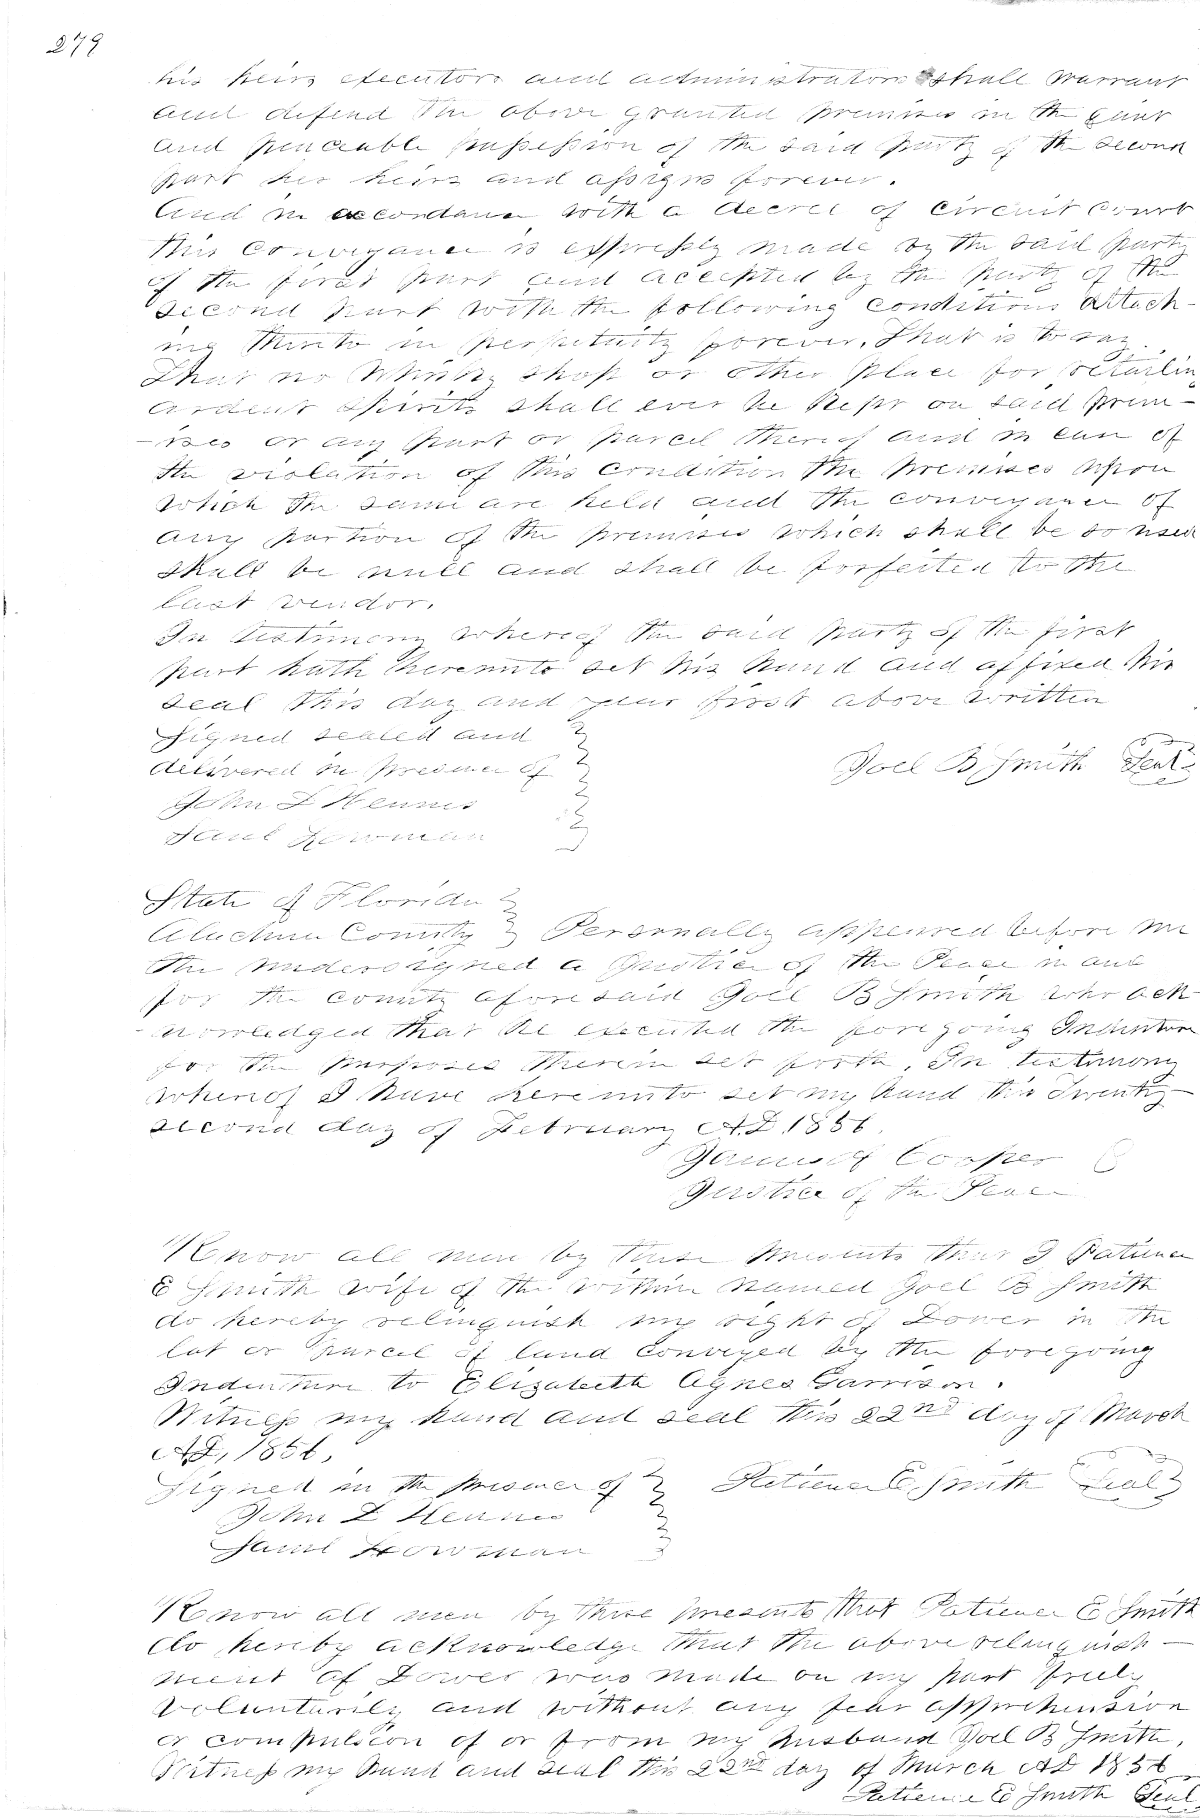 279
his heirs executors and administrators shall warrant
and defend the above granted premises in the quiet
and peaceable possession of the said party of the second
part her heirs and assigns forever.
And in accordance with a decree of circuit court
this conveyance is expressly made by the said party
of the first part and accepted by the party of the
second part with the following conditions attach-
ing thereto in perpetuity forever. That is to say
That no Whisky shop or other place for retailing
ardent spirits shall ever be kept on said prem-
-ises or any part or parcel thereof and in case of
the violation of this condition the premises upon
which the same are held and the conveyance of
any portion of the premises which shall be so used
shall be null and shall be forfeited to the
last vendor.
In testimony whereof the said party of the first
part hath hereunto set his hand and affixed his
seal this day and year first above written
Signed sealed and
delivered in presence of
Joel B Smith Seal
John L Hennis
Saml
State of Florida
Alachua County Personally appeared before me
the undersigned a Justice of the Peace in and
for the county aforesaid Joel B Smith who ack-
-nowledged that he executed the foregoing Indenture
for the purposes therein set forth. In testimony
whereof I have hereunto set my hand this Twenty-
second day of February A.D. 1856.
Cooper
Justice of the Peace
Know all men by these presents that I Patience
E Smith wife of the within named Joel B Smith
do hereby relinquish my right of Dower in the
lot or parcel of land conveyed by the foregoing
Indenture to Elizabeth Agnes Garrison.
Witness my hand and seal this 22nd day of March
A.D, 1856.
Signed in the presence of Patience E Smith Seal
John L Hennis
Saml
Know all men by these presents that Patience E Smith
do hereby acknowledge that the above relinquish-
ment of Dower was made on my part freely
voluntarily and without any fear apprehension
or compulsion of or from my husband Joel B Smith.
Witness my hand and seal this 22nd day of March AD 1856
Patience E Smith Seal